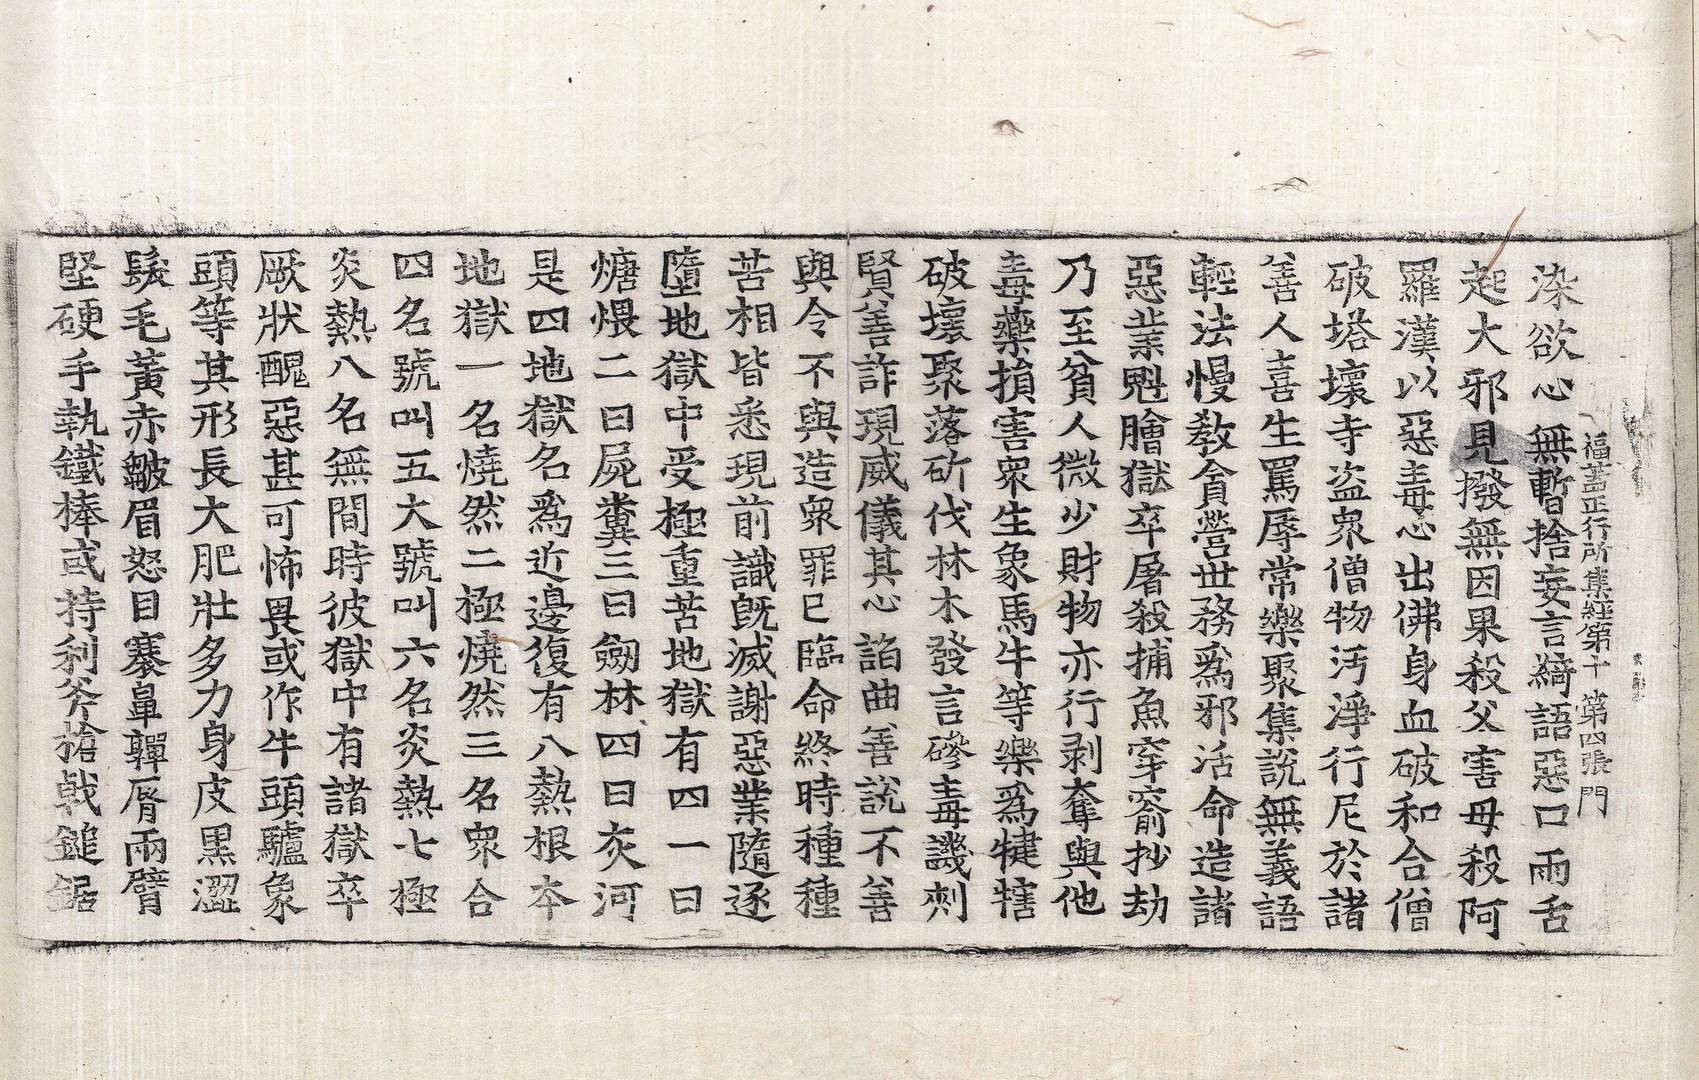 福蓋正行所集經第十 第四張 門
染欲心無暫捨妄言綺語惡口兩舌
起大邪見撥無因果殺父害母殺阿
羅漢以惡毒心出佛身血破和合僧
破塔壞寺盜衆僧物汚淨行尼於諸
善人喜生罵辱常樂聚集說無義語
輕法慢敎貪營世務爲邪活命造諸
惡業魁膾獄卒屠殺捕魚穿窬抄劫
乃至貧人微少財物亦行剥奪與他
毒藥損害衆生象馬牛等樂爲犍犗
破壞聚落斫伐林木發言磣毒譏刺
賢善詐現威儀其心諂曲善說不善
與令不與造衆罪已臨命終時種種
苦相皆悉現前識旣滅謝惡業隨逐
墮地獄中受極重苦地獄有四一曰
煻煨二曰屍糞三曰劒林四曰灰河
是四地獄名爲近邊復有八熱根本
地獄一名燒然二極燒然三名衆合
四名號叫五大號叫六名炎熱七極
炎熱八名無間時彼獄中有諸獄卒
厥狀醜惡甚可怖畏或作牛頭驢象
頭等其形長大肥壯多力身皮黑澀
髮毛黃赤皺眉怒目褰鼻嚲脣兩臂
堅硬手執鐵棒或持利斧槍戟鎚鋸